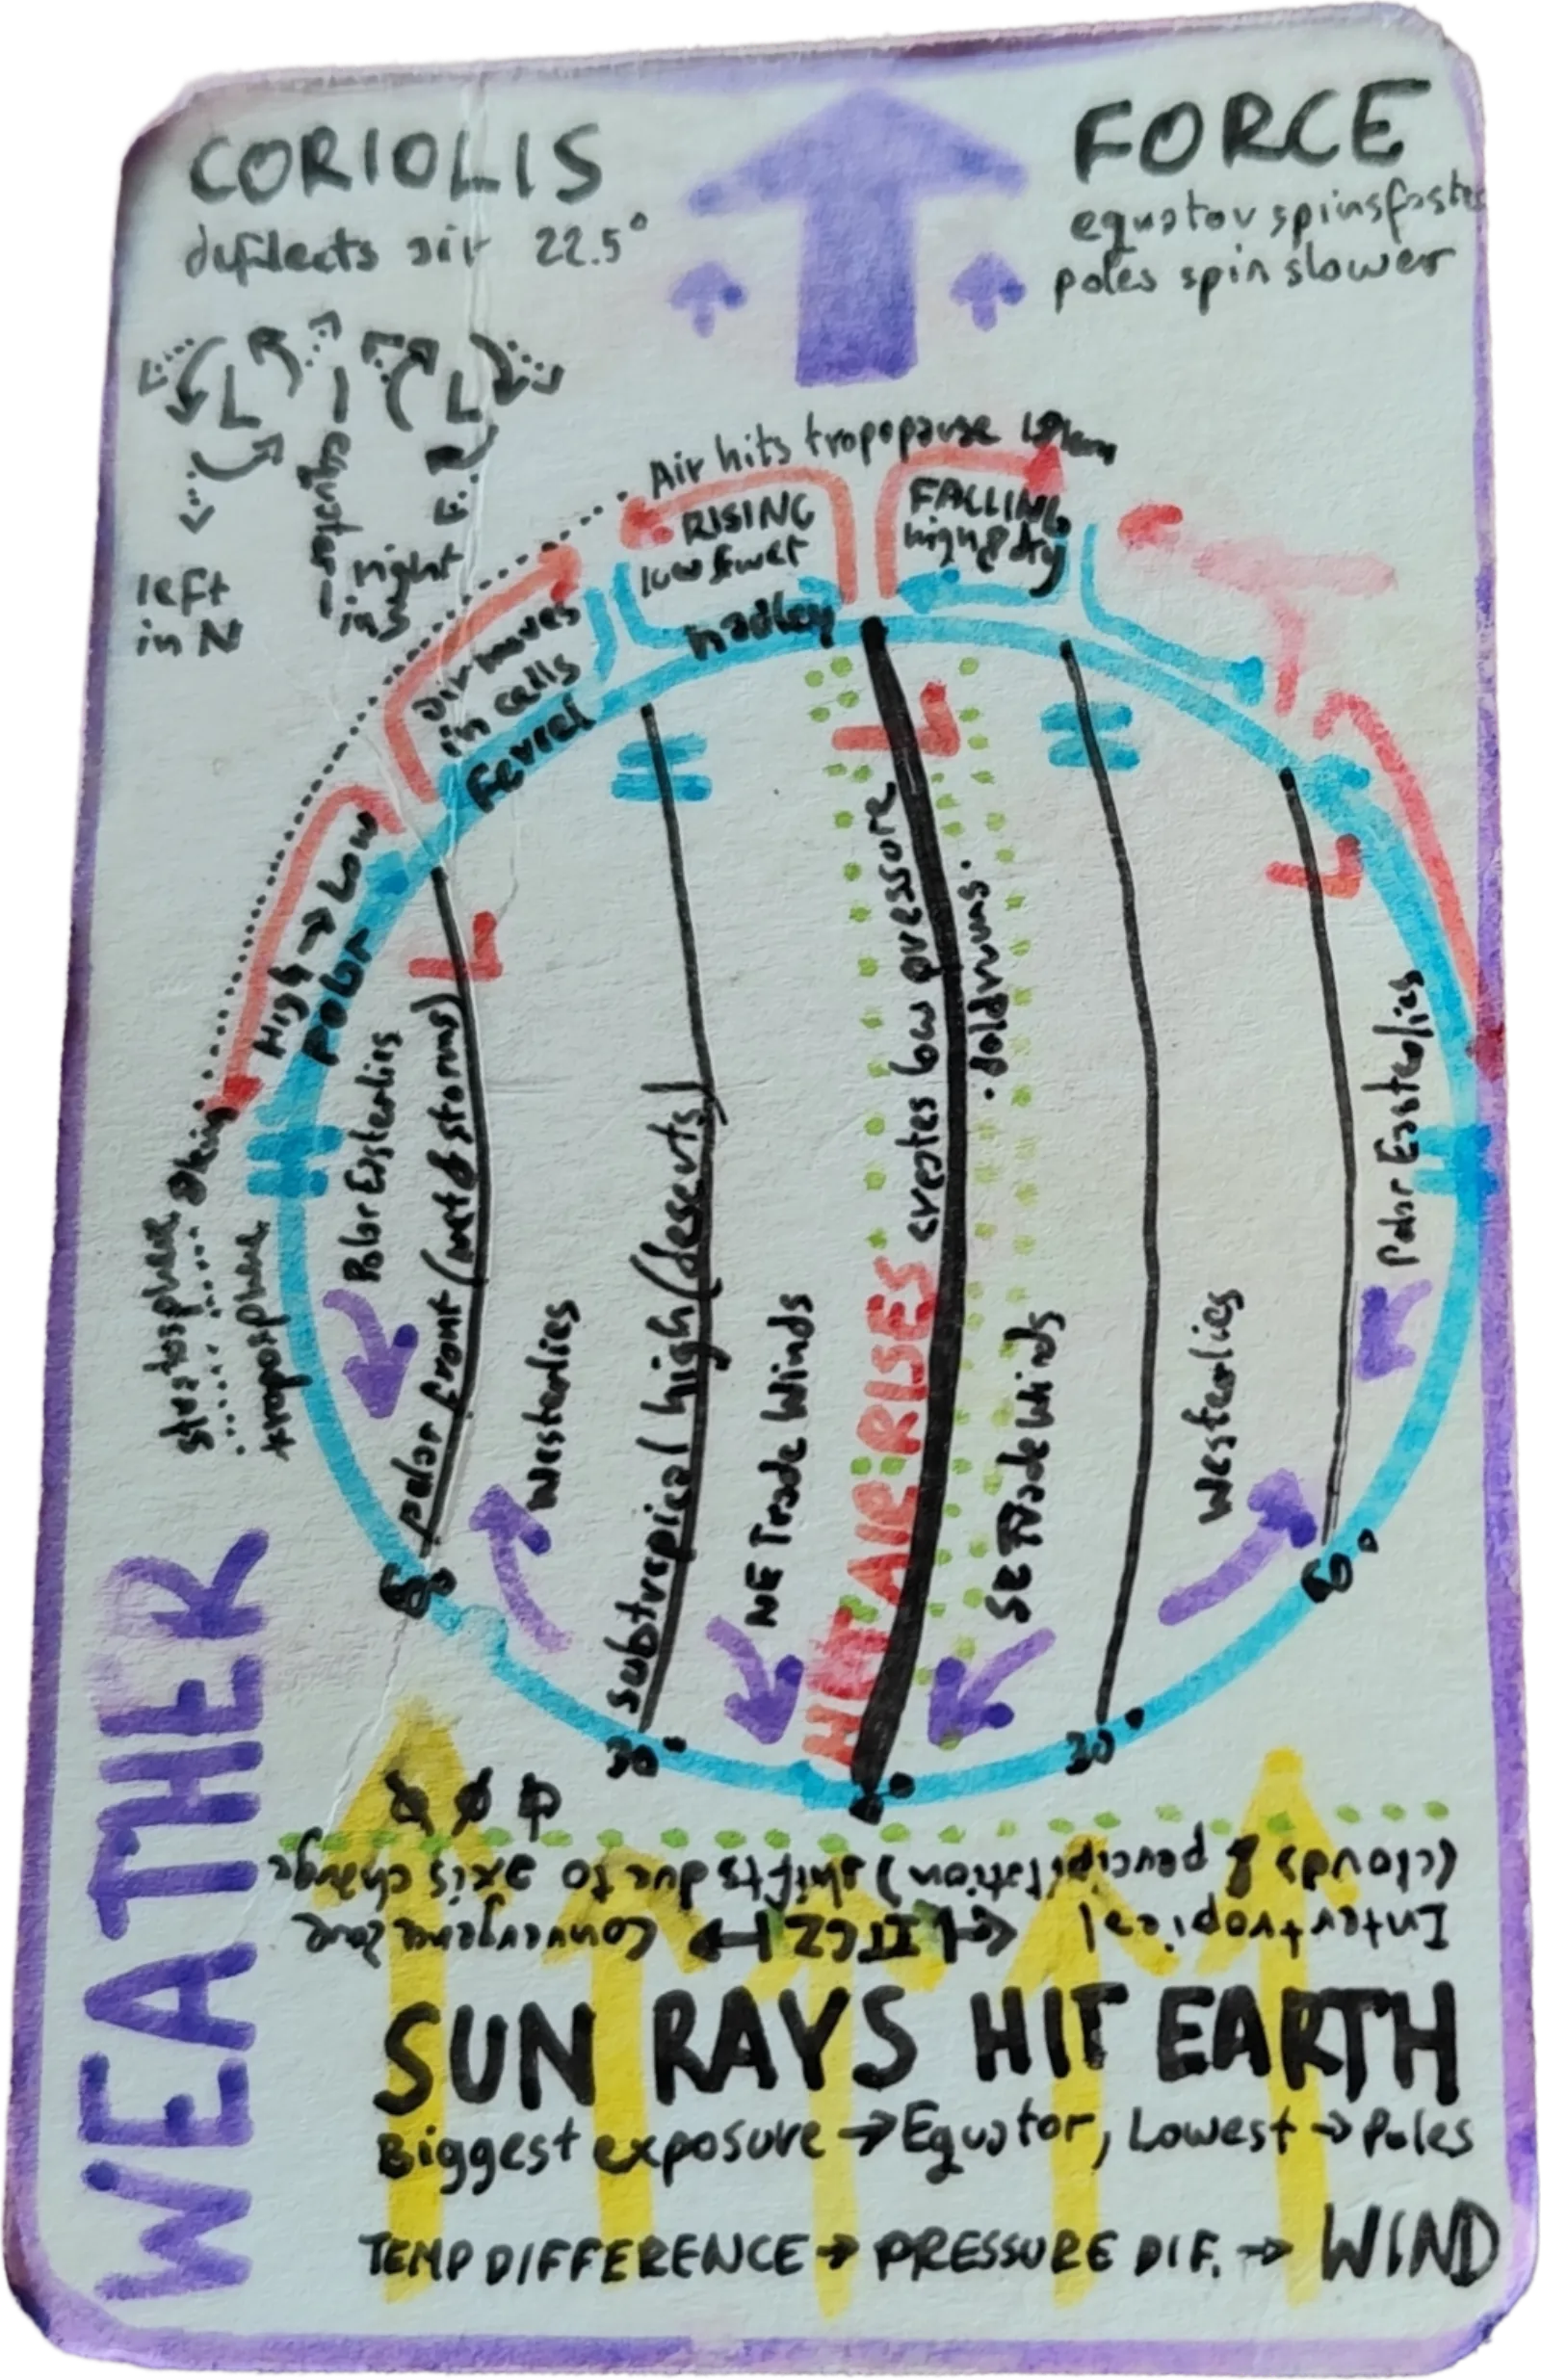 CORIOLIS
deflects air 22.5°
FORCE
equator spins faster
poles spin slower
L
L
equator
left
in N
right
in S
Air hits tropopause
RISING
low & wet
FALLING
high & dry
hadley
air moves
in cells
Ferrel
High → Low
POLAR
stratosphere
troposphere
H
H
H
H
L
L
L
Polar Easterlies
polar front (wet & storms)
Westerlies
subtropical high (deserts)
NE Trade Winds
HOT AIR RISES creates low pressure
doldrums
SE Trade Winds
Westerlies
Polar Easterlies
60°
30°
0°
30°
60°
Intertropical ITCZ Convergence Zone
(clouds & percipitation) shifts due to axis change
SUN RAYS HIT EARTH
Biggest exposure → Equator, Lowest → Poles
TEMP DIFFERENCE → PRESSURE DIF. → WIND
WEATHER